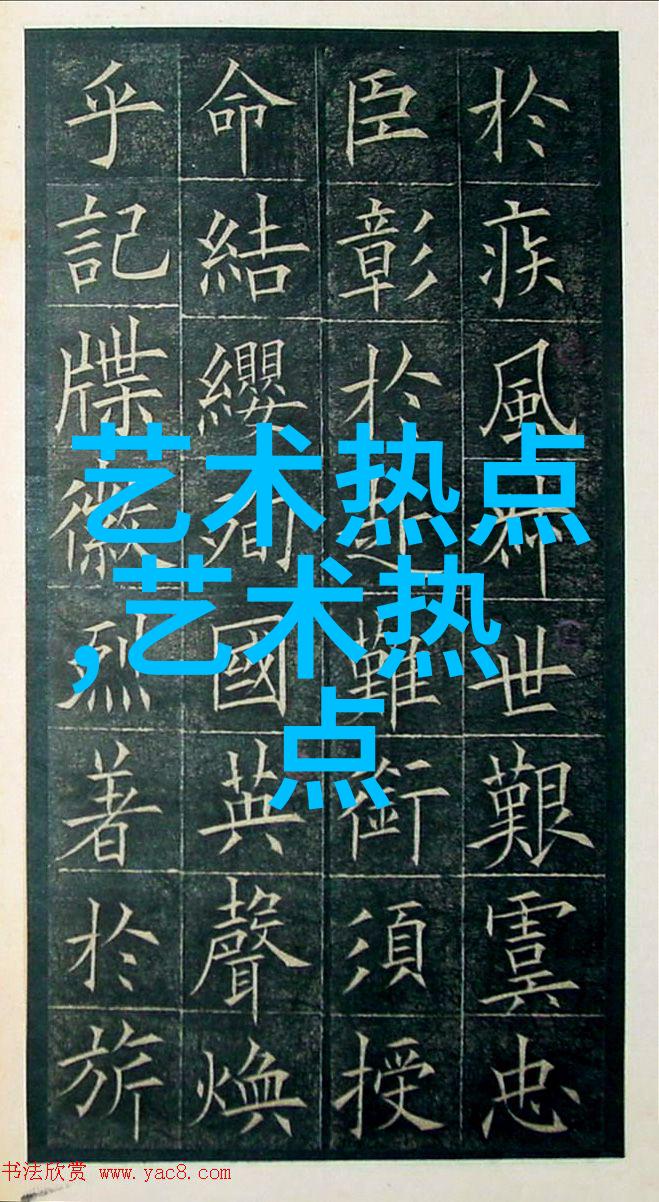 於疾風叔世艱虞忠
臣彰於赴難銜須授
命結纓殉國英聲煥
乎記牒徽烈著於旂
艺术热点
,艺术热
点
书法欣赏 www.yac8.com